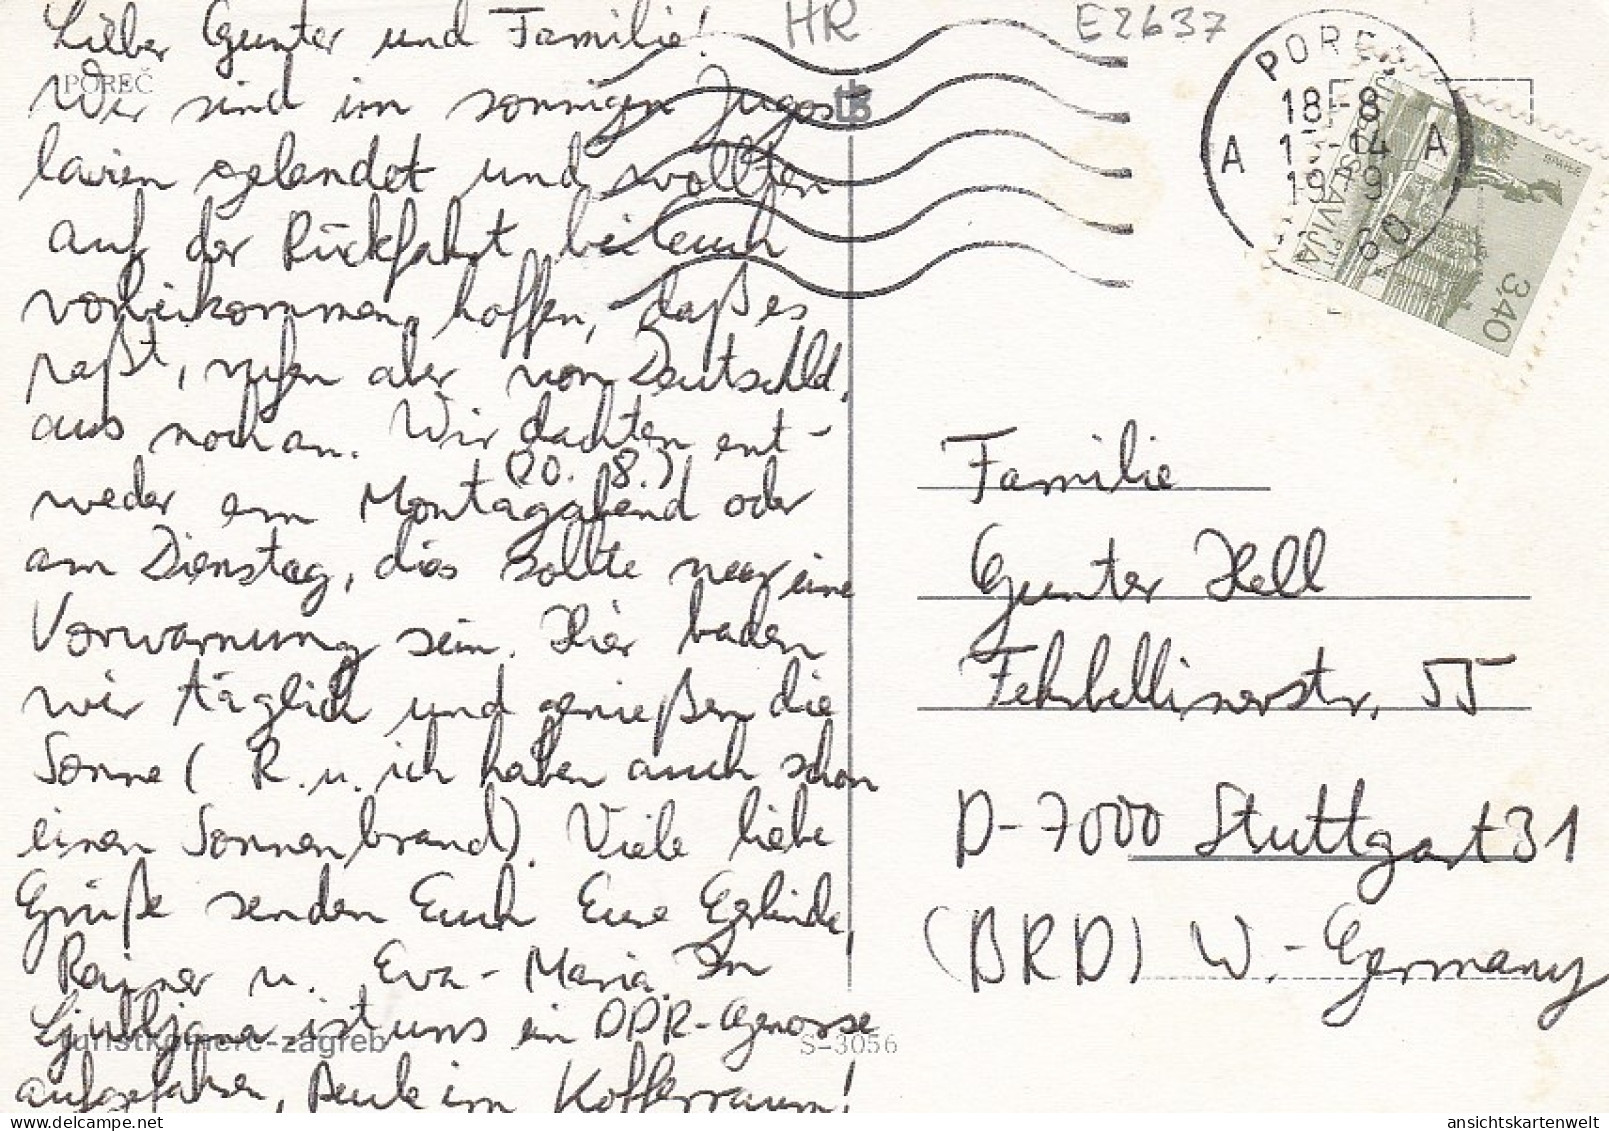 HR
E2637
Lieber Gunter und Familie!
POREČ
Wir sind im sonnigen Jugos
lawien gelandet und wollten
auf der Rückfahrt bei euch
vorbeikommen, hoffen, daß es
paßt, rufen aber von Deutschld.
aus noch an. Wir dachten ent-
(20. 8.)
weder am Montagabend oder
am Dienstag, dies sollte nur eine
Vorwarnung sein. Hier baden
wir täglich und genießen die
Sonne (R. u. ich haben auch schon
einen Sonnenbrand). Viele liebe
Grüße senden Euch Eure Gerlinde,
Rainer u. Eva-Maria. In
Ljubljana ist uns ein DDR-Genosse
turistkomerc-zagreb
S-3056
aufgefahren, Beule im Kofferraum!
POREČ
18-8
A
A
JUGOSLAVIJA
3,40
Familie
Gunter Hell
Fehrbellinerstr. 55
D-7000 Stuttgart 31
(BRD) W.-Germany
ansichtskartenwelt